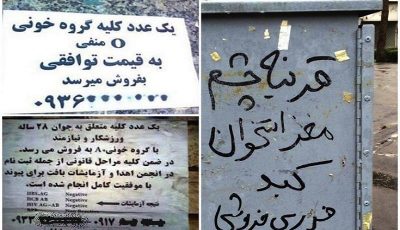 یک عدد کلیه گروه خونی
O منفی
به قیمت توافقی
بفروش میرسد
۰۹۳۶
یک عدد کلیه متعلق به جوان ۲۸ ساله
ورزشکار و نیازمند
با گروه خونی A+ به فروش می رسد.
در ضمن کلیه مراحل قانونی از جمله ثبت نام
در انجمن اهدا و آزمایشات بافت برای پیوند
با موفقیت کامل انجام شده است.
HBS.AG Negative
HCB AB Negative
HIV AG-AB Negative
نتیجه آزمایشات
۰۹۱۷
قرنیه چشم
مغز استخوان
کبد
فروشی